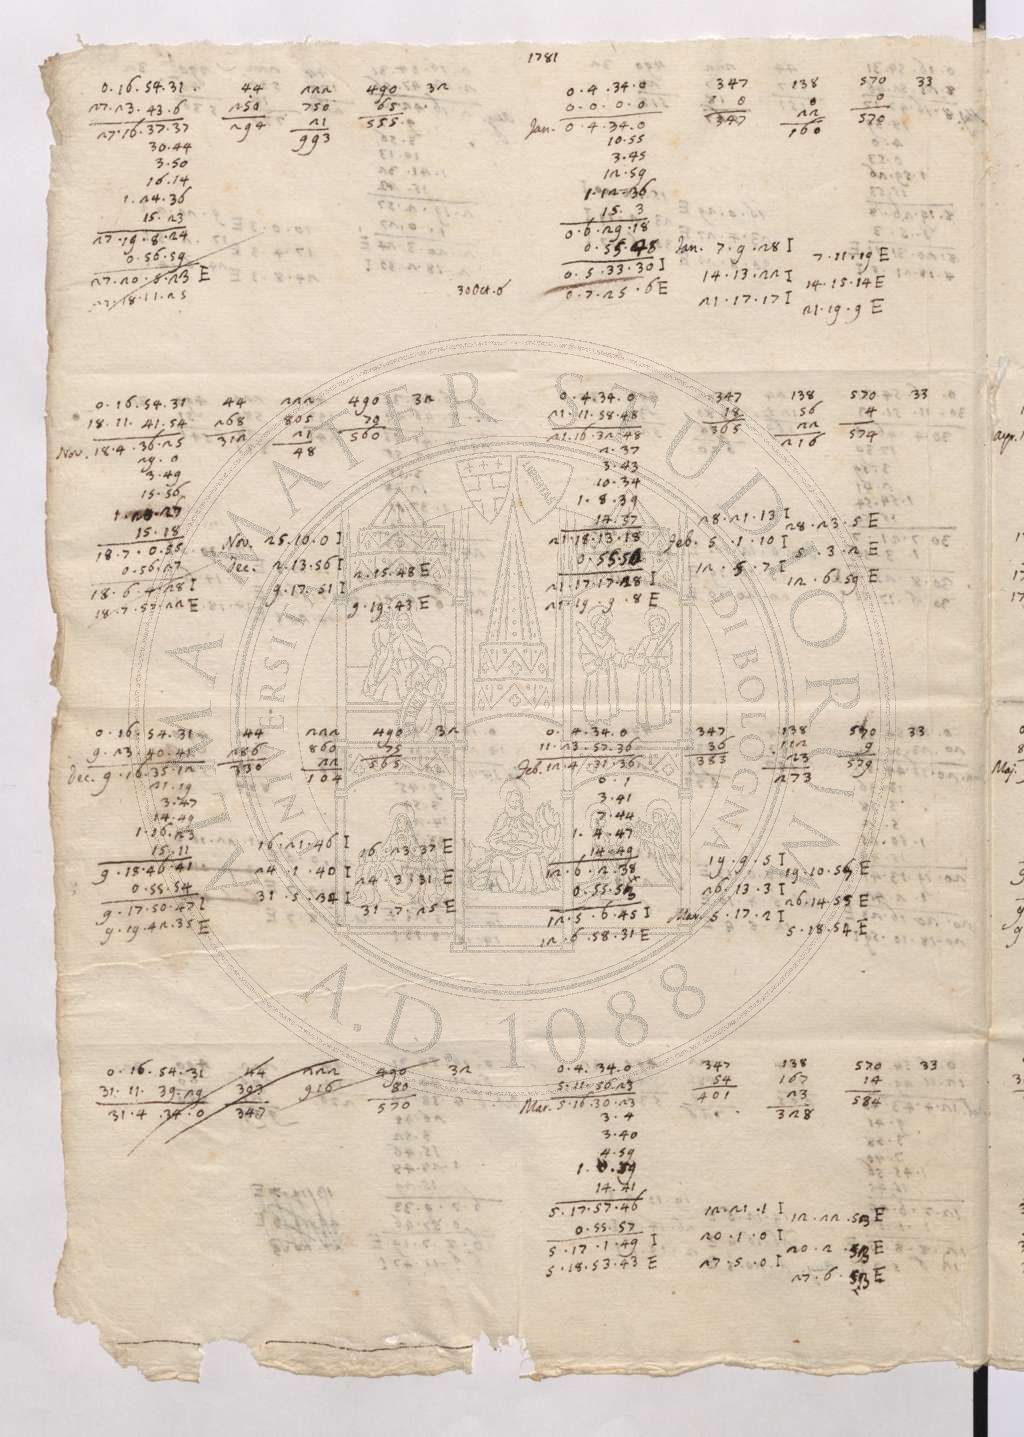 1781
0.16.54.31 44 222 490 32
27.23.43.6 250 750 65
27.16.37.37 294 21 555
993
30.44
3.50
16.14
1.24.36
15.23
27.19.8.24
0.56.59
27.20.5.23 E
27.18.11.25
30 Oct. 6
0.4.34.0 347 138 570 33
0.0.0.0 0 0 0
Jan. 0.4.34.0 347 22 570
160
10.55
3.45
12.59
1.12.36
15.3
0.6.29.18
0.55.48 Jan. 7.9.28 I 7.11.19 E
0.5.33.30 I 14.13.22 I 14.15.14 E
0.7.25.6 E 21.17.17 I 21.19.9 E
0.16.54.31 44 222 490 32
18.11.41.54 268 805 70
Nov. 18.4.36.25 312 21 560
48
29.0
3.49
15.56
1.20.27
15.18
18.7.0.55 Nov. 25.10.0 I
0.56.27 Dec. 2.13.56 I 2.15.48 E
18.6.4.28 I 9.17.51 I 9.19.43 E
18.7.57.22 E
0.4.34.0 347 138 570 33
21.11.58.48 18 56 4
21.16.32.48 365 22 574
216
2.37
3.43
10.34
1.8.39
14.57 28.21.13 I 28.23.5 E
21.18.13.18 Feb. 5.1.10 I 5.3.2 E
0.55.50 12.5.7 I 12.6.59 E
21.17.17.28 I
21.19.9.8 E
0.16.54.31 44 222 490 32
9.23.40.41 286 860 75
Dec. 9.16.35.12 330 22 565
104
21.19
3.47
14.49
1.16.23
15.11 16.21.46 I 16.23.37 E
9.18.46.41 24.1.40 I 24.3.31 E
0.55.54 31.5.34 I 31.7.25 E
9.17.50.47 I
9.19.42.35 E
0.4.34.0 347 138 570 33
11.23.57.36 36 112 9
Feb. 12.4.31.36 383 23 579
273
0.1
3.41
7.44
1.4.47
14.49
12.6.2.38 19.9.5 I 19.10.56 E
0.55.53 26.13.3 I 26.14.55 E
12.5.6.45 I Mar. 5.17.2 I 5.18.54 E
12.6.58.31 E
0.16.54.31 44 222 490 32
31.11.39.29 303 916 80
31.4.34.0 347 570
0.4.34.0 347 138 570 33
5.11.56.23 54 167 14
Mar. 5.16.30.23 401 23 584
328
3.4
3.40
4.59
1.0.59
14.41
5.17.57.46 12.21.1 I 12.22.53 E
0.55.57 20.1.0 I 20.2.53 E
5.17.1.49 I 27.5.0 I 27.6.53 E
5.18.53.43 E
ALMA MATER STUDIORUM
UNIVERSITÀ DI BOLOGNA
LIBERTAS
A.D. 1088